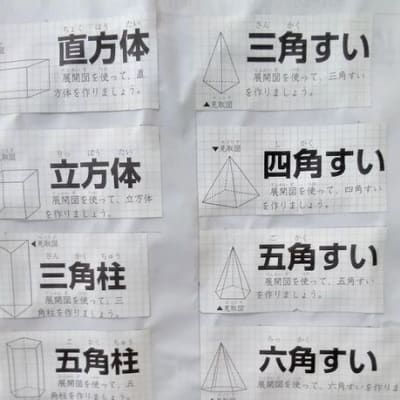 ちょく ほう たい
直方体
展開図を使って、直
方体を作りましょう。
りっ ぽう たい
見取図
立方体
展開図を使って、立方体
を作りましょう。
◀見取図
さん かく ちゅう
三角柱
展開図を使って、三
角柱を作りましょう。
ご かく ちゅう
五角柱
展開図を使って、五
角柱を作りましょう。
さん かく
三角すい
展開図を使って、三角すい
を作りましょう。
▲見取図
▼見取図
し かく
四角すい
展開図を使って、四角すい
を作りましょう。
ご かく
五角すい
展開図を使って、五角すい
を作りましょう。
▲見取図
ろっ かく
六角すい
展開図を使って、六角すいを作りま
▲見取図